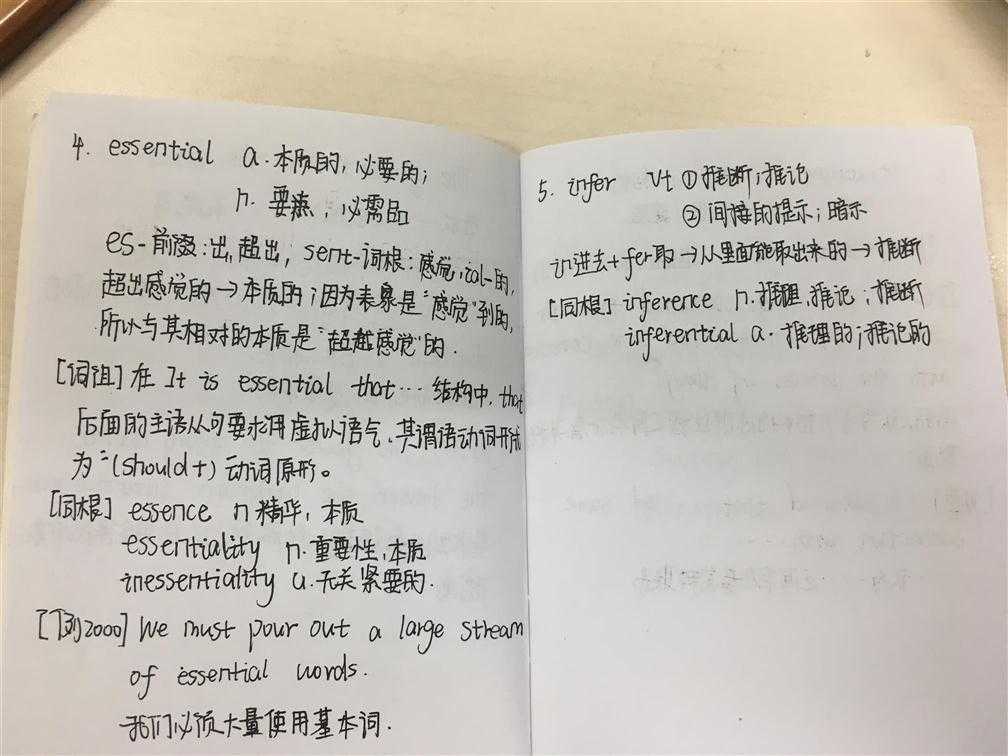 4. essential a.本质的,必要的;
n. 要素;必需品
es-前缀:出,超出; sent-词根:感觉,ial-的,
超出感觉的→本质的;因为表象是“感觉”到的,
所以与其相对的本质是“超越感觉”的.
[词组] 在 It is essential that… 结构中, that
后面的主语从句要求用虚拟语气,其谓语动词形式
为“(should+)动词原形。
[同根] essence n.精华,本质
essentiality n.重要性,本质
inessentiality a.无关紧要的.
[例2000] We must pour out a large stream
of essential words.
我们必须大量使用基本词.
5. infer vt ①推断;推论
②间接的提示;暗示
in进去+fer取→从里面能取出来的→推断
[同根] inference n.推理,推论;推断
inferential a.推理的;推论的